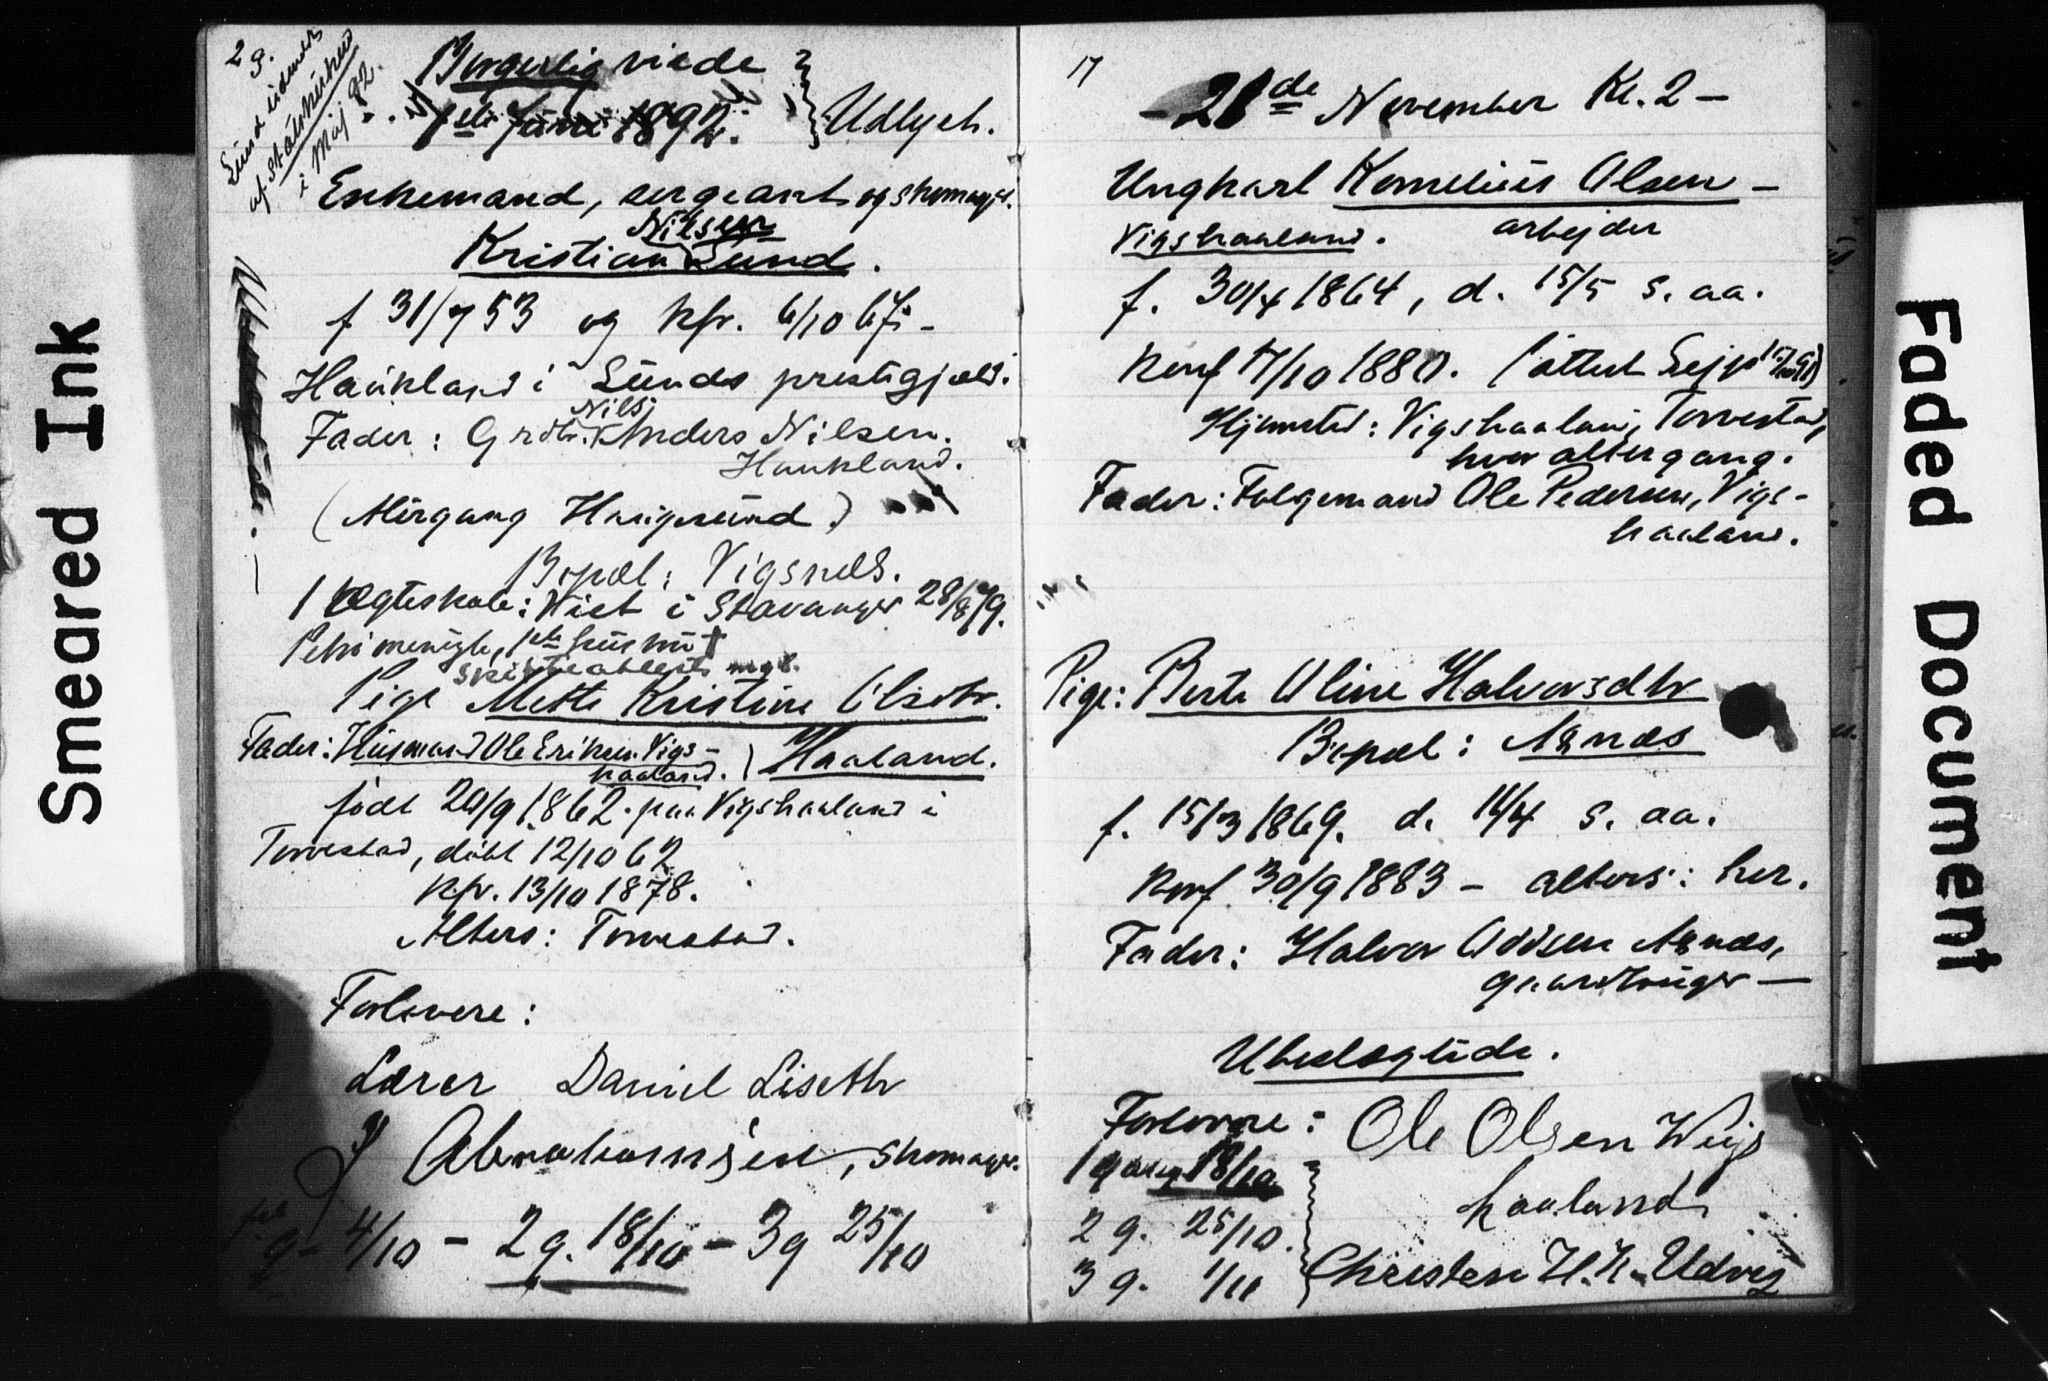 Smeared Ink
2
9.
af statskirken
i Maj 92.
Borgerlig viede
1ste Juni 1892.
Udlyst.
Enkemand, sergeant og skomager
Nilsen
Kristian Lund.
f 31/7 53 og kfr. 6/10 67
Haukland i Lunds prestegjæld.
Fader: Grdbr. Anders Nilsen
Haukland.
(Altergang Haugesund)
Bopæl: Vigsnæs.
1 Ægteskab: Viet i Stavanger 28/8 79.
Petri menighed, 1ste hustru †
Pige Mette Kristine Olsdtr.
Fader: Husmand Ole Eriksen Vigs-
haaland. Haaland.
født 20/9 1862 paa Vigshaaland i
Torvestad, døbt 12/10 62
Kfr. 13/10 1878.
Alters: Torvestad.
Forlovere:
Lærer Daniel Liseth
J Abrahamsen, skomager
g - 4/10 - 2 g. 18/10 - 3 g 25/10
17
- 21de November Kl. 2 -
Ungkarl Kornelius Olsen -
Vigshaaland. arbejder
f. 30/4 1864, d. 15/5 s. aa.
Konf 17/10 1880. (attest
Hjemsted: Vigshaaland, Torvestad,
hvor altergang.
Fader: Ole Pedersen, Vigs-
haaland.
Pige: Berte Oline Halvorsdtr
Bopæl: Aznæs
f. 15/3 1869. d. 14/4 s. aa.
Konf 30/9 1883 - alters: her.
Fader: Halvor Oddsen
gaardbruger -
Ubeslægtede.
Forlovere: Ole Olsen Wigs
haaland
1 gang 18/10
2 g. 25/10.
3 g. 1/11
Christen H. H. Udvig
Faded Document